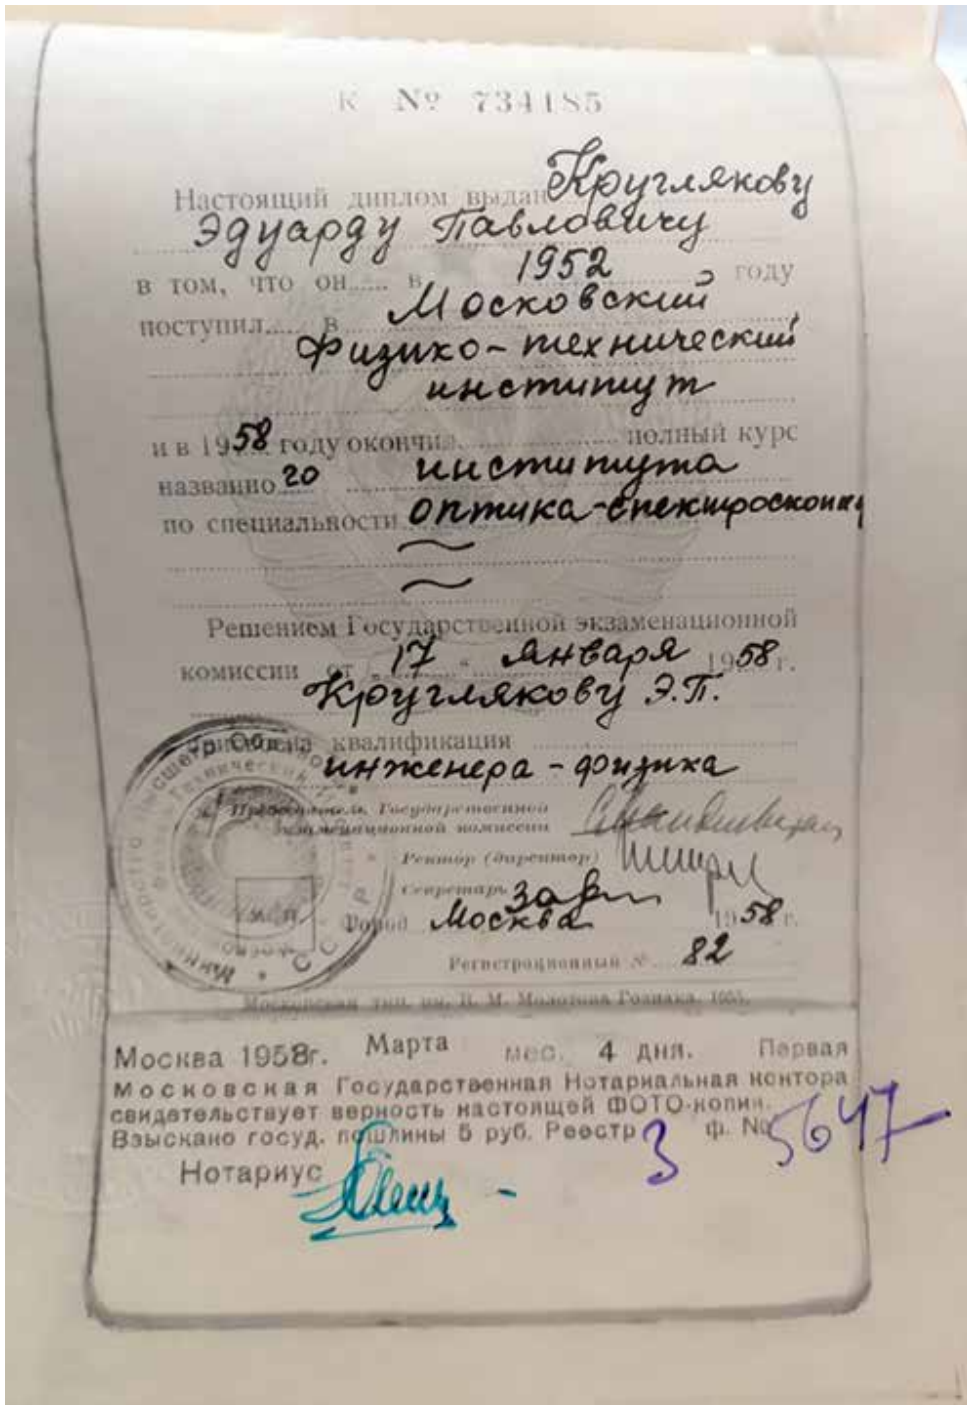 К № 734185
Настоящий диплом выдан Круглякову
Эдуарду Павловичу
в том, что он..... в 1952 году
поступил..... в Московский
физико-технический
институт
и в 1958 году окончил полный курс
названно го института
по специальности оптика-спектроскопия
Решением Государственной экзаменационной
комиссии от „ 17 “ января 1958 г.
Круглякову Э.П.
присвоена квалификация
инженера-физика
Председатель Государственной
экзаменационной комиссии
Ректор (директор)
Секретарь
Город Москва 1958 г.
Регистрационный № 82
Московская тип. им. В. М. Молотова Гознака. 1955.
Москва 1958г. Марта мес. 4 дня. Первая
Московская Государственная Нотариальная контора
свидетельствует верность настоящей ФОТО-копии.
Взыскано госуд. пошлины 5 руб. Реестр 3 ф. № 5647
Нотариус